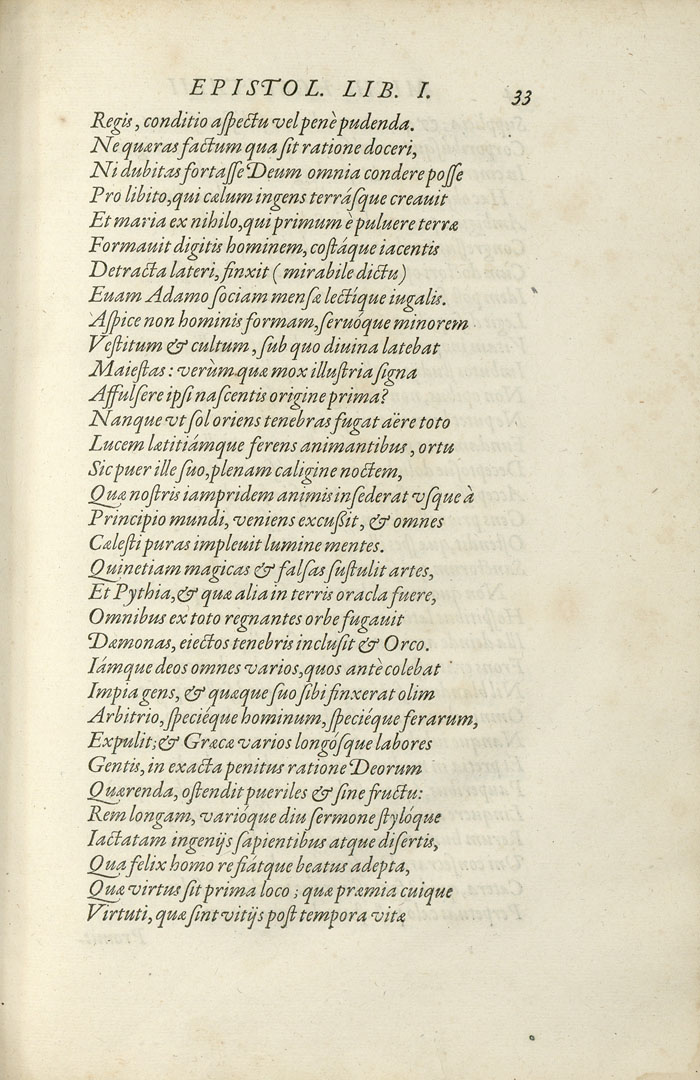 EPISTOL. LIB. I. 33
Regis, conditio aſpectu vel penè pudenda.
Ne quæras factum qua ſit ratione doceri,
Ni dubitas fortaſſe Deum omnia condere poſſe
Pro libito, qui cælum ingens terráſque creauit
Et maria ex nihilo, qui primum è puluere terræ
Formauit digitis hominem, coſtáque iacentis
Detracta lateri, finxit (mirabile dictu)
Euam Adamo ſociam menſæ lectíque iugalis.
Aſpice non hominis formam, ſeruóque minorem
Veſtitum & cultum, ſub quo diuina latebat
Maieſtas: verùm quæ mox illuſtria ſigna
Affulſere ipſi naſcentis origine prima?
Nanque vt ſol oriens tenebras fugat aëre toto
Lucem lætitiámque ferens animantibus, ortu
Sic puer ille ſuo, plenam caligine noctem,
Quæ noſtris iampridem animis inſederat vſque à
Principio mundi, veniens excußit, & omnes
Cæleſti puras impleuit lumine mentes.
Quinetiam magicas & falſas ſuſtulit artes,
Et Pythia, & quæ alia in terris oracla fuere,
Omnibus ex toto regnantes orbe fugauit
Dæmonas, eiectos tenebris incluſit & Orco.
Iámque deos omnes varios, quos antè colebat
Impia gens, & quæque ſuo ſibi finxerat olim
Arbitrio, ſpeciéque hominum, ſpeciéque ferarum,
Expulit; & Græcæ varios longóſque labores
Gentis, in exacta penitus ratione Deorum
Quærenda, oſtendit pueriles & ſine fructu:
Rem longam, varióque diu ſermone ſtylóque
Iactatam ingenijs ſapientibus atque diſertis,
Qua felix homo re fiátque beatus adepta,
Quæ virtus ſit prima loco; quæ præmia cuique
Virtuti, quæ ſint vitijs poſt tempora vitæ